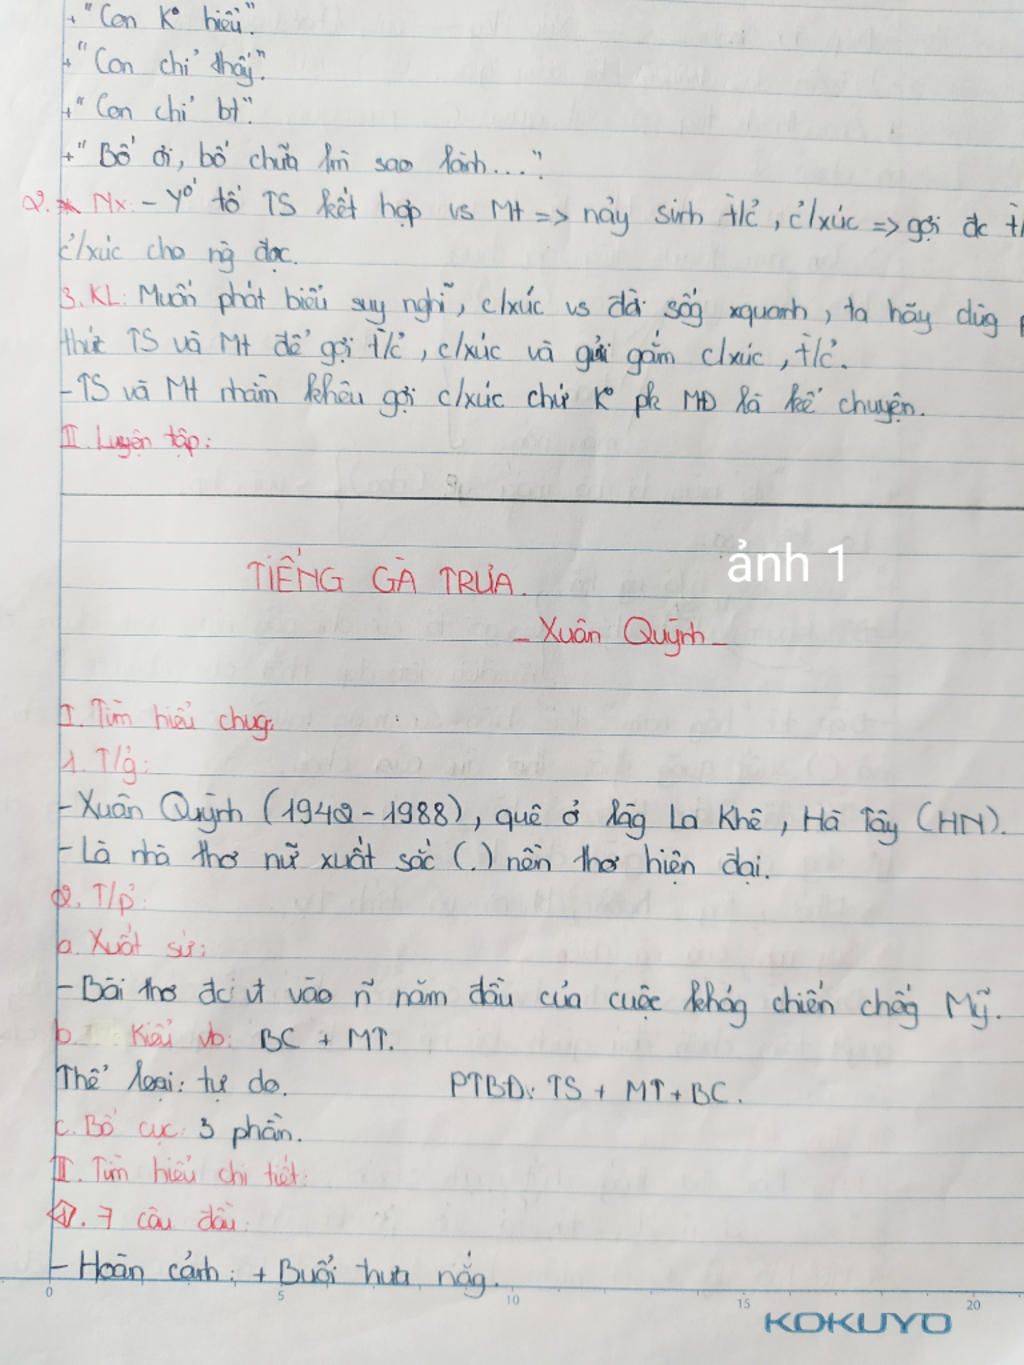 + "Con Kº hiểu".
+ "Con chỉ thấy".
+ "Con chỉ bt".
+ "Bố ơi, bố chữa lm sao lành...".
2. Nx: - Yº tố TS kết hợp vs Mt => nảy sinh t/c, c/xúc => gợi đc t/
c/xúc cho ng đọc.
3. KL: Muốn phát biểu suy nghĩ, c/xúc vs đời sốg xquanh, ta hãy dùg p
thức TS và Mt để gợi t/c, c/xúc và gửi gắm c/xúc, t/c.
- TS và Mt nhằm khêu gợi c/xúc chứ Kº pk MĐ là kể chuyện.
II. Luyện tập:
TIẾNG GÀ TRƯA.
ảnh 1
- Xuân Quỳnh -
I. Tìm hiểu chug:
1. T/g:
- Xuân Quỳnh (1942 - 1988), quê ở làg La Khê, Hà Tây (HN).
- Là nhà thơ nữ xuất sắc (.) nền thơ hiện đại.
2. T/p:
a. Xuất sứ:
- Bài thơ đc vt vào n~ năm đầu của cuộc khág chiến chốg Mỹ.
b. Kiểu vb: BC + MT.
Thể loại: tự do. PTBĐ: TS + MT + BC.
c. Bố cục: 3 phần.
II. Tìm hiểu chi tiết:
1. 7 câu đầu:
- Hoàn cảnh: + Buổi trưa nắg.
0 5 10 15 20
KOKUYO